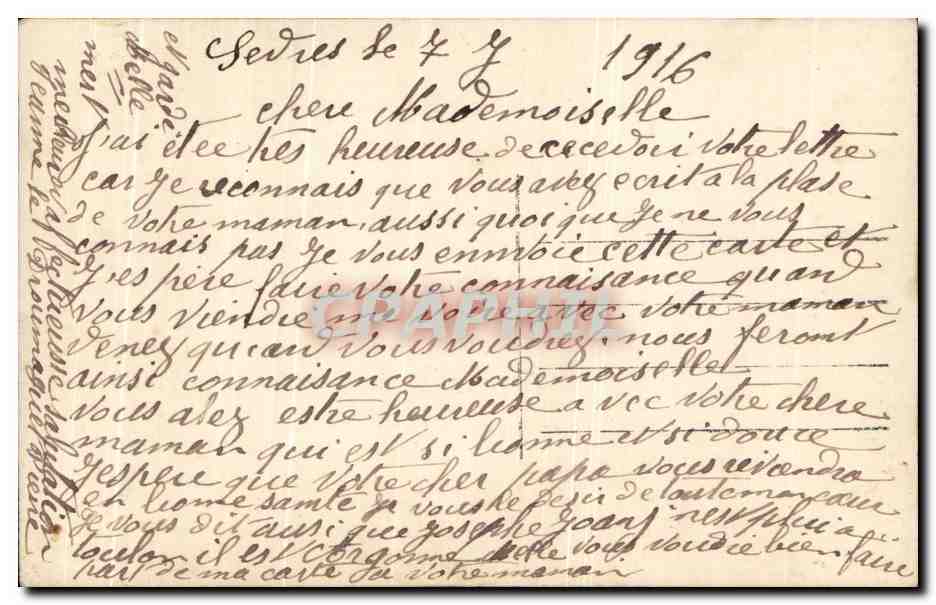 Sedres le 7 J 1916
chere Mademoiselle
J'ai étée tres heureuse de recevoir votre lettre
car Je reconnais que vous avez ecrit a la plase
de votre maman, aussi quoi que Je ne vous
connais pas Je vous ennvoie cette carte et
J'espère faire votre connaisance quand
vous viendre me voire avec votre maman
venez quand vous voudrez. nous feront
ainsi connaisance Mademoiselle
vous alez estre heureuse avec votre chere
maman qui est si bonne et si douce
J'espere que votre cher papa vous reviendra
en bonne samté Je vous le desir de tout mon cœur
Je vous dit ausi que Joseph n'est plui a
toulon il est vous voudre bien faire
part de ma carte a votre maman
et garde
belle
mes
Jeanne
CPAPHIL